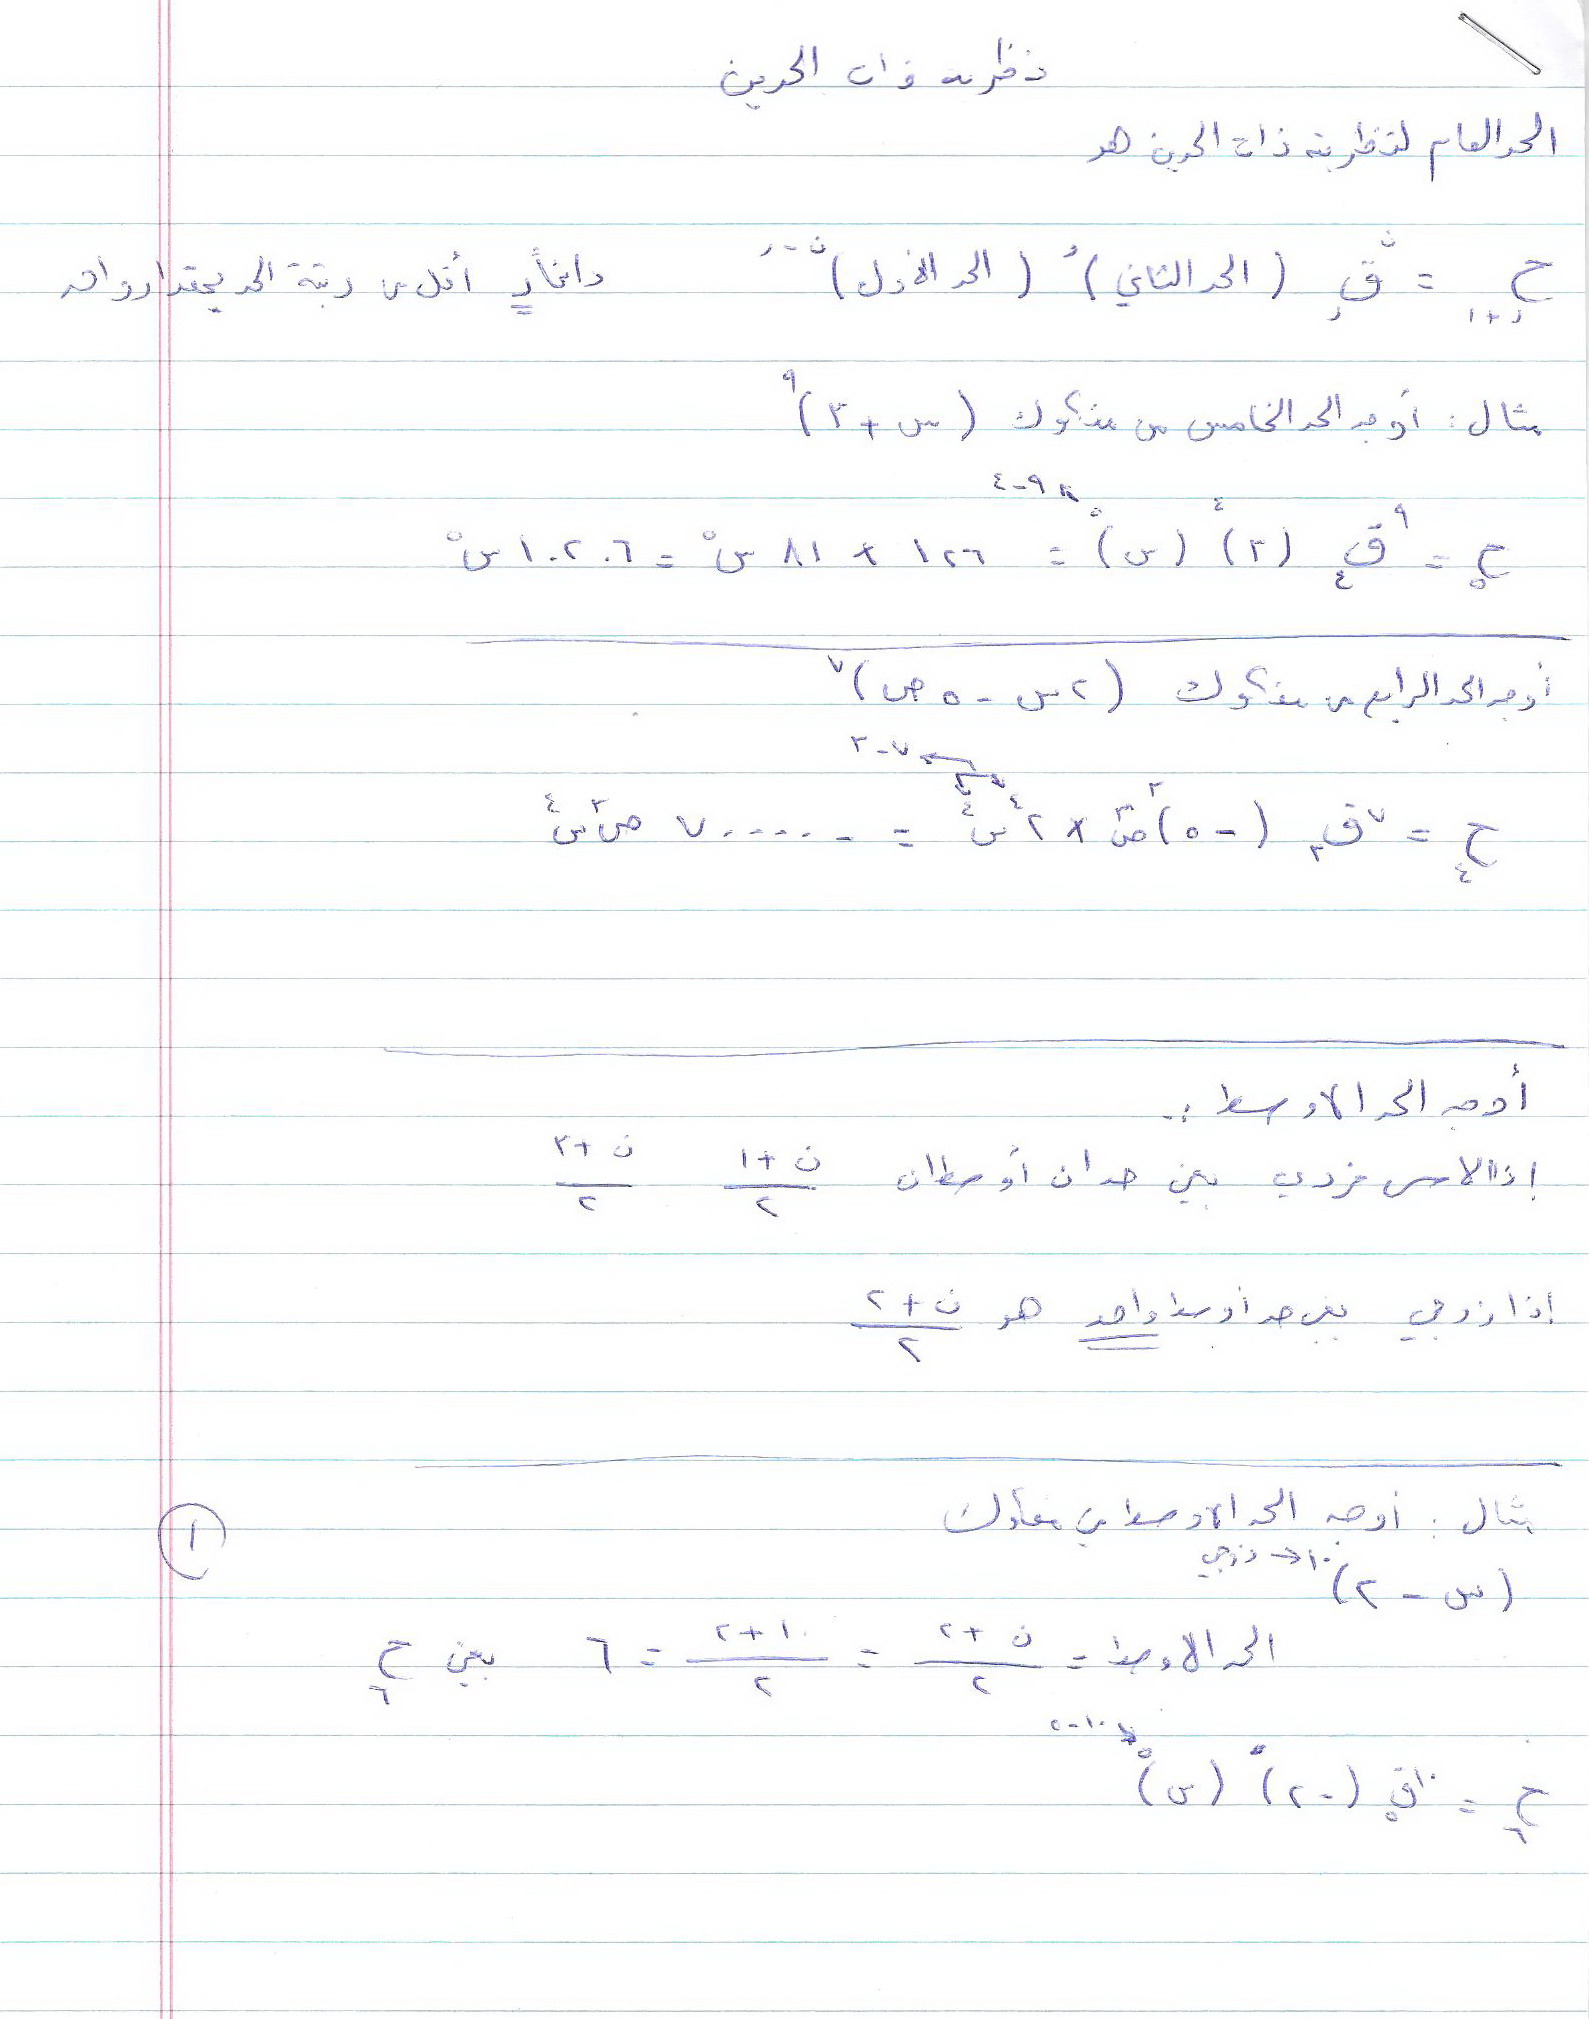 نظرية ذات الحدين
الحد العام لنظرية ذات الحدين هو
ح ر+١ = ن ق ر (الحد الثاني)^ر (الحد الأول)^ن-ر دائماً ر أقل من رتبة الحد بمقدار واحد
مثال : أوجد الحد الخامس من مفكوك (س + ٣)^٩
ح ٥ = ٩ ق ٤ (٣)^٤ (س)^٥ ٩-٤ = ١٢٦ × ٨١ س^٥ = ١٠٢٠٦ س^٥
أوجد الحد الرابع من مفكوك (٢س - ٥ص)^٧
٧-٣
ح ٤ = ٧ ق ٣ (-٥)^٣ ص^٣ × ٢^٤ س^٤ = - ٧٠٠٠٠ ص^٣ س^٤
أوجد الحد الأوسط :-
إذا الاس فردي يعني حدان أوسطان ن+١/٢ ن+٣/٢
إذا زوجي يعني حد أوسط واحد هو ن+٢/٢
مثال : أوجد الحد الأوسط من مفكوك
(س - ٢)^١٠ → زوجي
١
الحد الأوسط = ن+٢/٢ = ١٠+٢/٢ = ٦ يعني ح ٦
ح ٦ = ١٠ ق ٥ (-٢)^٥ (س)^٥